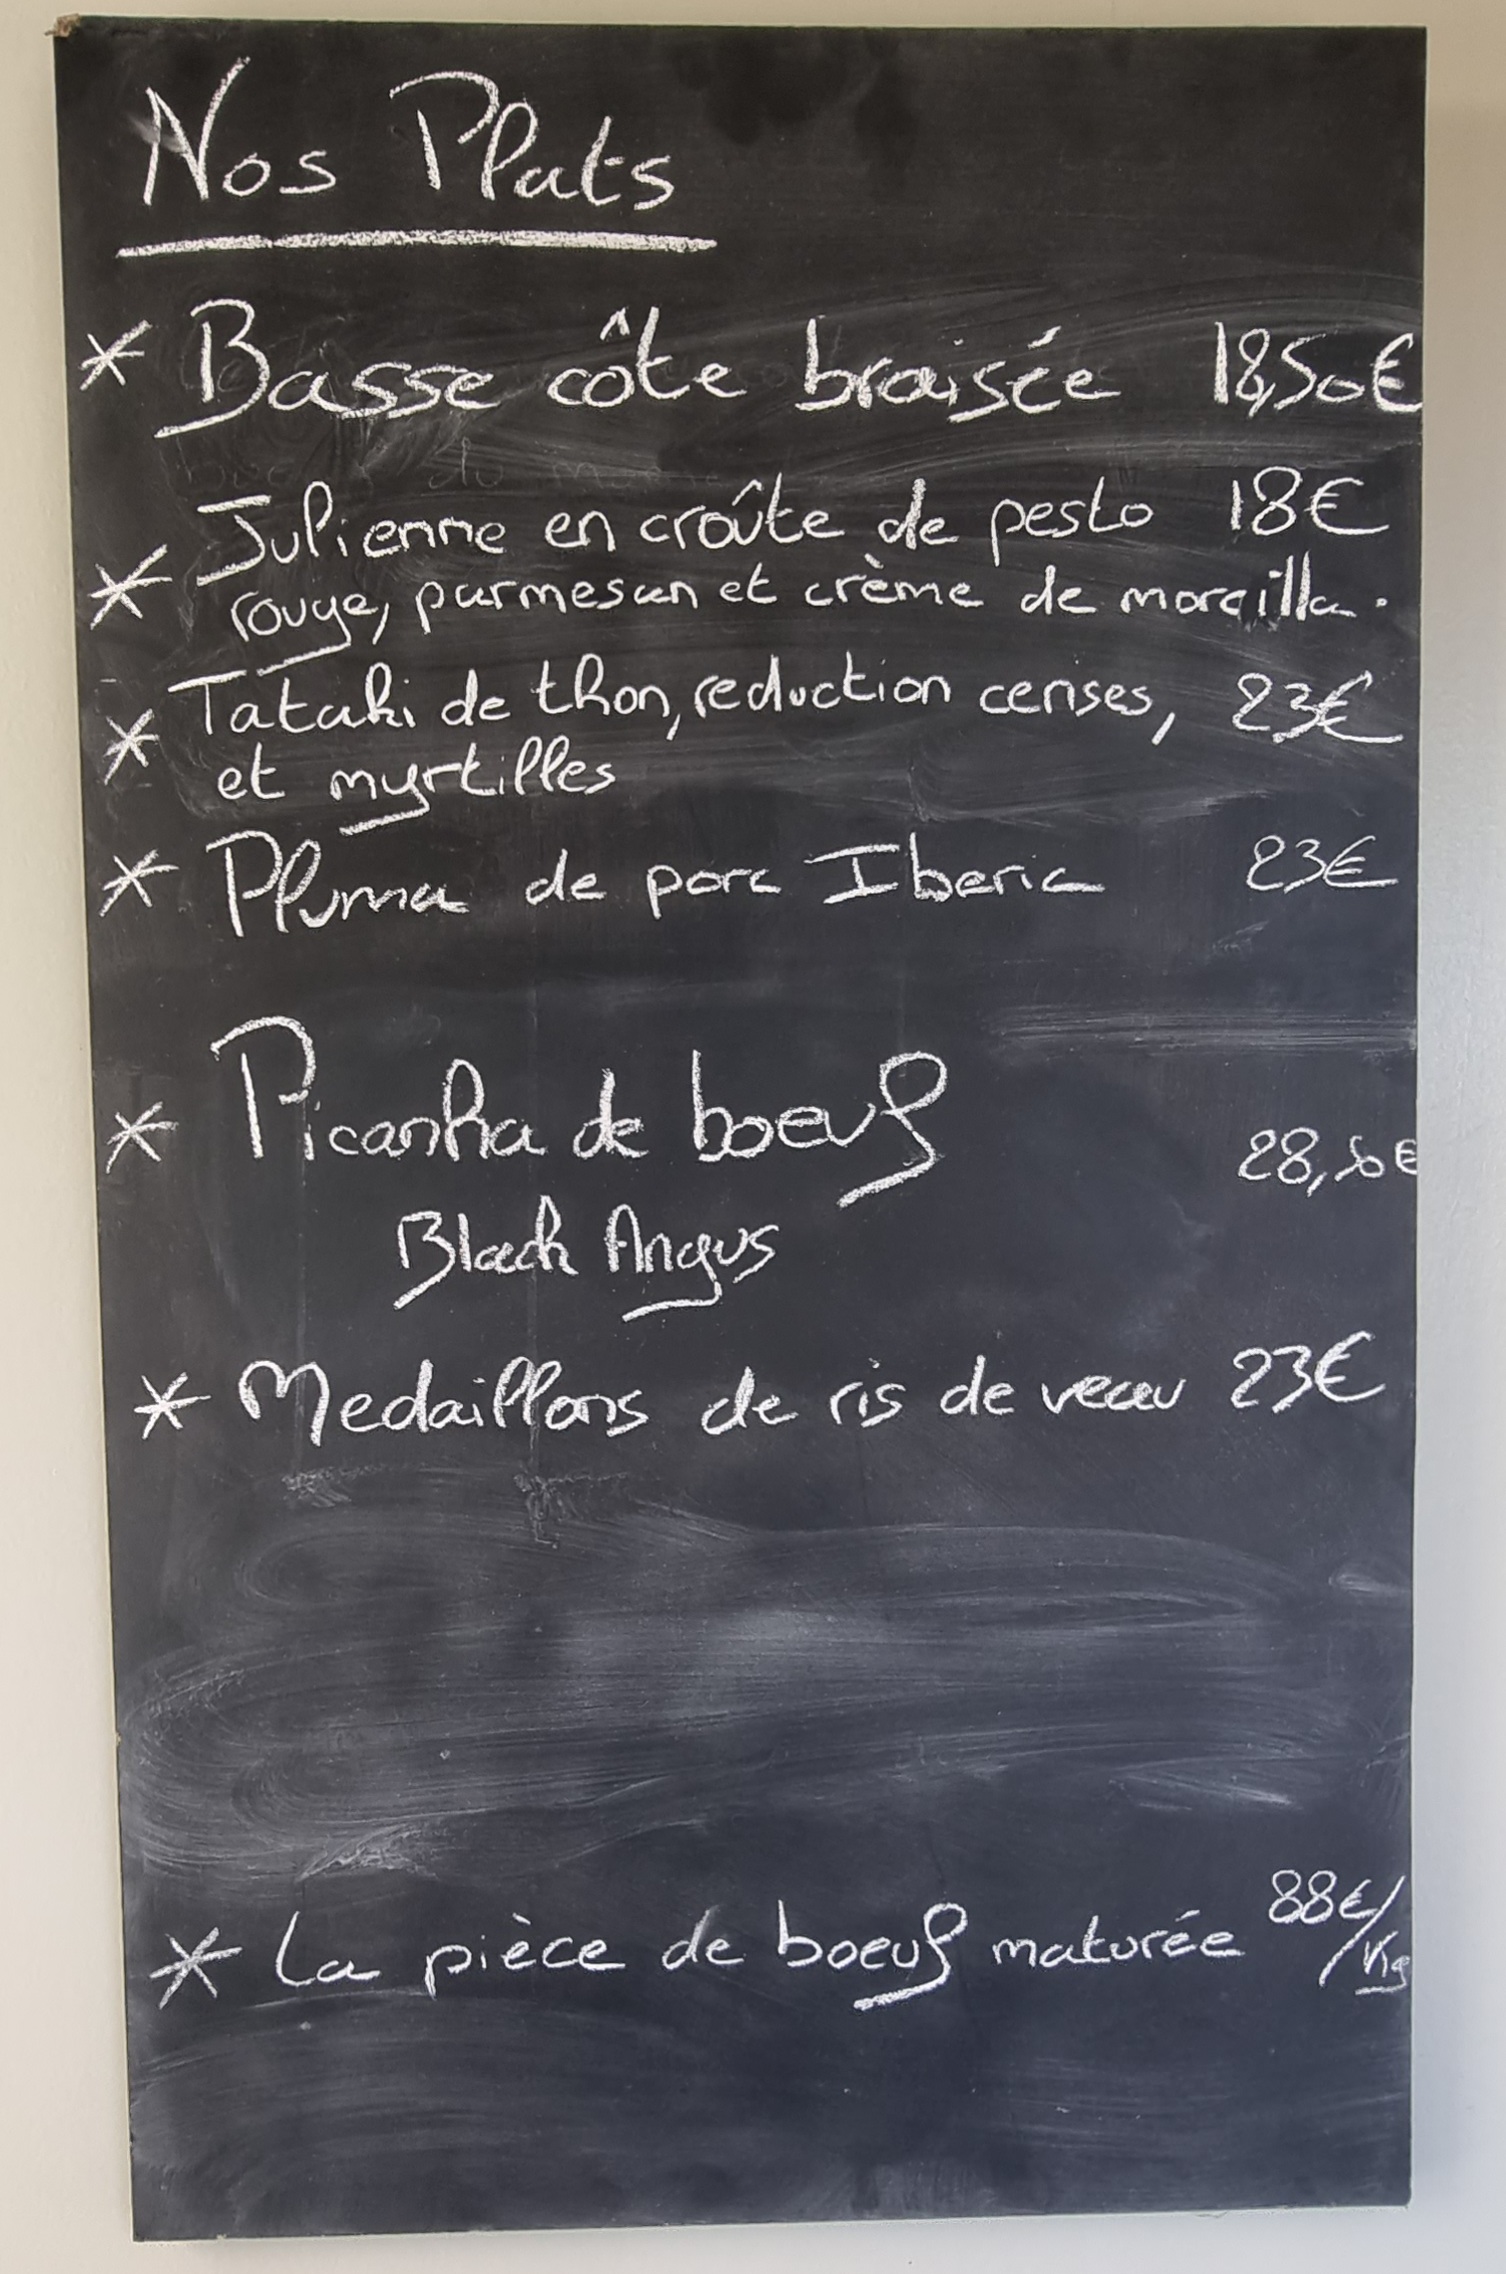 Nos Plats
* Basse côte braisée 18,50€
Julienne en croûte de pesto 18€
* rouge, parmesan et crème de morcilla.
Tataki de thon, reduction cerises, 23€
* et myrtilles
* Pluma de porc Iberic 23€
* Picanha de boeuf 28,50€
Black Angus
* Medaillons de ris de veau 23€
* La pièce de boeuf maturée 88€/Kg